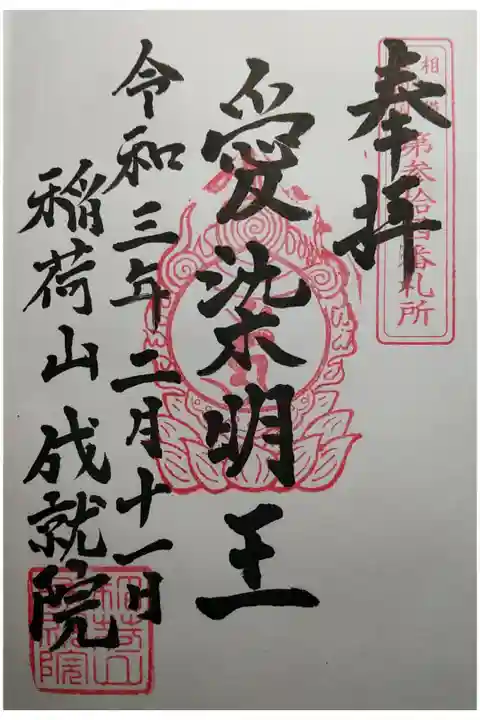 奉拝
第参拾四番札所
愛染明王
令和三年二月十一日
稲荷山成就院